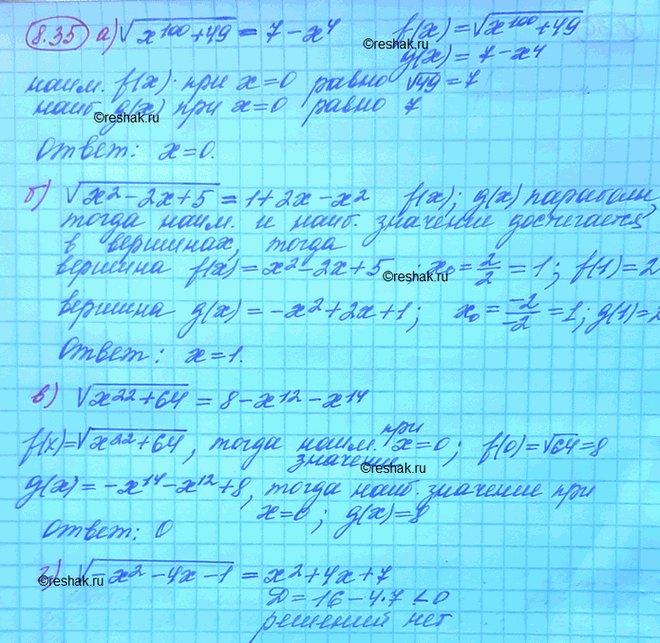 8.35 а) √(x¹⁰⁰+49) = 7 - x⁴ f(x) = √(x¹⁰⁰+49)
g(x) = 7 - x⁴
©reshak.ru
наим. f(x) при x=0 равно √49 = 7
наиб g(x) при x=0 равно 7
©reshak.ru
Ответ: x=0.
б) √(x²-2x+5) = 1+2x-x² f(x); g(x) параболы,
тогда наим. и наиб. значение достигается
в вершинах, тогда
вершина f(x) = x²-2x+5; x₀ = 2/2 = 1; f(1) = 2
©reshak.ru
вершина g(x) = -x²+2x+1; x₀ = -2/-2 = 1; g(1) = 2
Ответ: x=1.
в) √(x²²+64) = 8 - x¹² - x¹⁴
f(x) = √(x²²+64), тогда наим. значение при x=0; f(0) = √64 = 8
©reshak.ru
g(x) = -x¹⁴ - x¹² + 8, тогда наиб. значение при
x=0; g(x) = 8
Ответ: 0
г) √(-x²-4x-1) = x²+4x+7
©reshak.ru
D = 16 - 4·7 < 0
решений нет